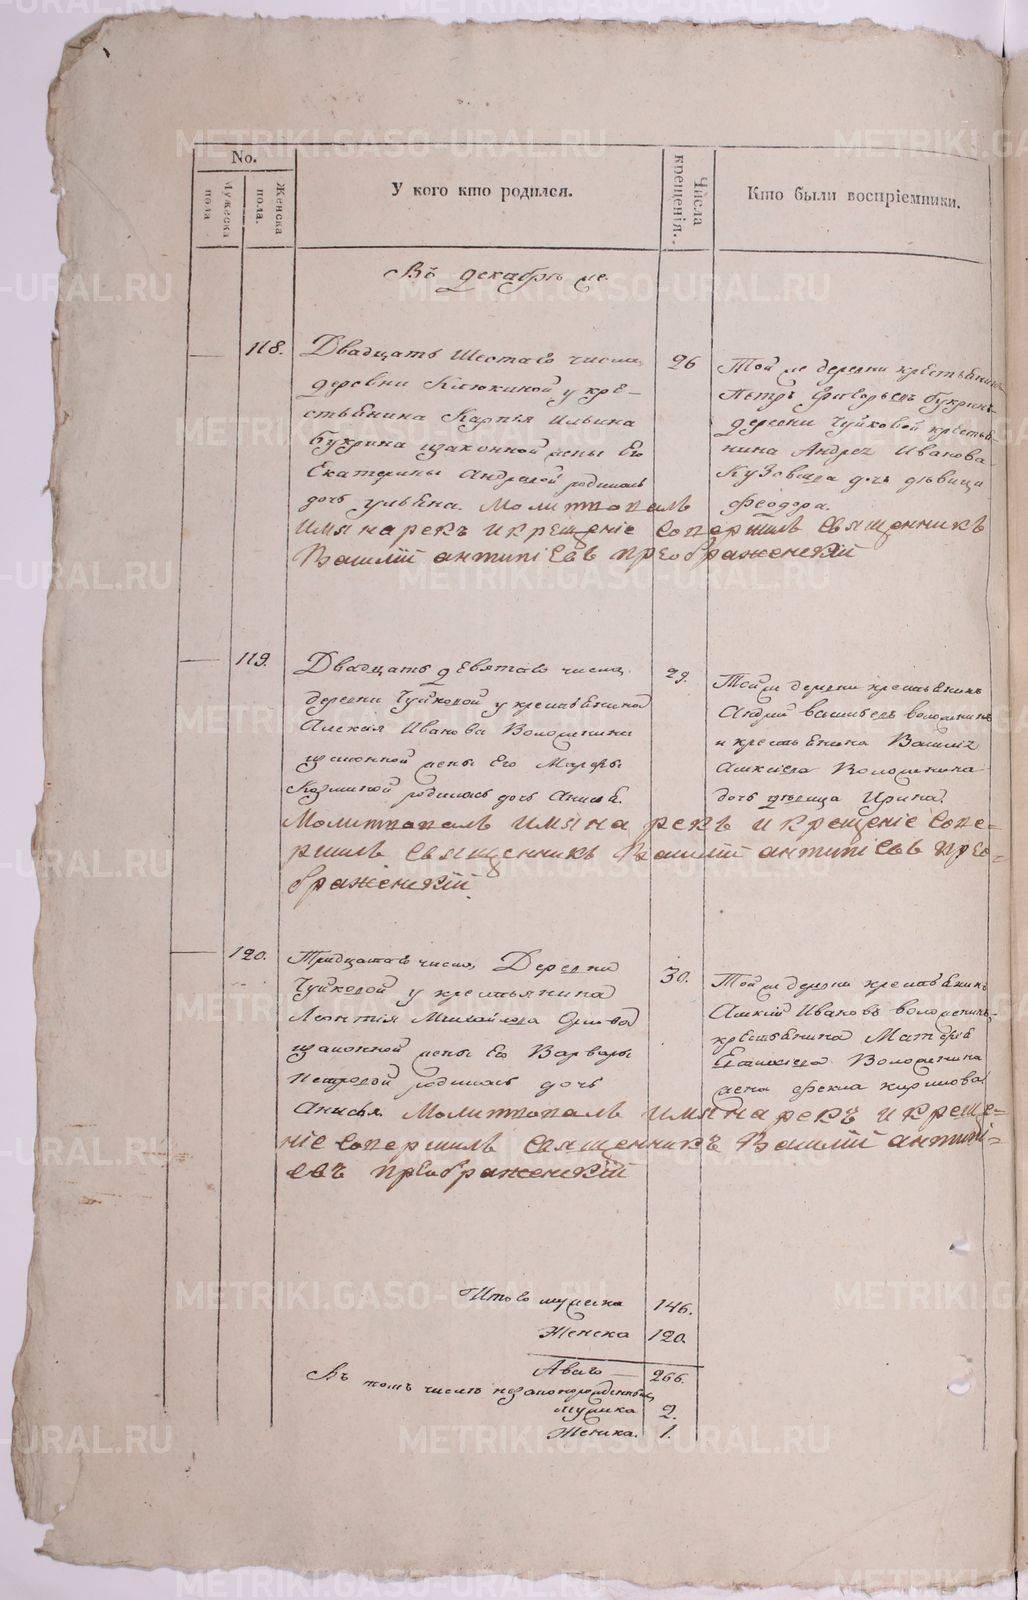 No.
Мужеска пола
Женска пола.
У кого кто родился.
Числа крещенія.
Кто были воспріемники.
Въ декабрѣ м-цѣ
118.
Двадцать шестаго числа
деревни Клюкиной у кре-
стьенина Карпія Ильина
Букрина изаконной жены Его
Екатерины Андреевой родилась
дочь ульена. Молитвовалъ
имя нарекъ и крещеніе совершилъ священникъ
Василій антипіевъ преображенскій
26
Той же деревни крестьенинъ
Петръ Григорьевъ букринъ
деревни Чуйковой крестье-
нина Андрея Иванова
дочь дѣвица
феодора.
119.
Двадцать девятаго числа
деревни Чуйковой у крестьенина
Алексія Иванова Воложенина
изаконной жены Его Марѳы
Козминой родилась дочь Анисья.
Молитвовалъ имя нарекъ и крещеніе сове-
ршилъ священникъ Василій антипіевъ прео-
браженскій.
29.
Тойже деревни крестьенинъ
Андрей васильевъ воложенинъ
и крестьенина Василія
Алексіева Воложенина
дочь дѣвица Ирина.
120.
Тридцатаго числа, Деревни
Чуйковой у крестьянина
Леонтія Михайлова
изаконной жены Его Варвары
Петровой родилась дочь
Анисья. Молитвовалъ имя нарекъ и креще-
ніе совершилъ священникъ Василій антипі-
евъ преображенскій
30.
Тойже деревни крестьенинъ
Алексій Ивановъ воложенинъ,
крестьенина Матвѣя
Воложенина
жена фекла кирилова
Итого мужеска 146.
Женска 120.
Авсего 266.
Въ томъ числѣ незаконорожденныхъ
мужска 2.
Женска. 1.
METRIKI.GASO-URAL.RU